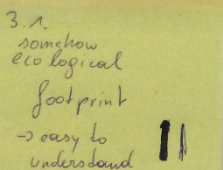 3.1.
somehow
ecological
footprint
→ easy to
understand